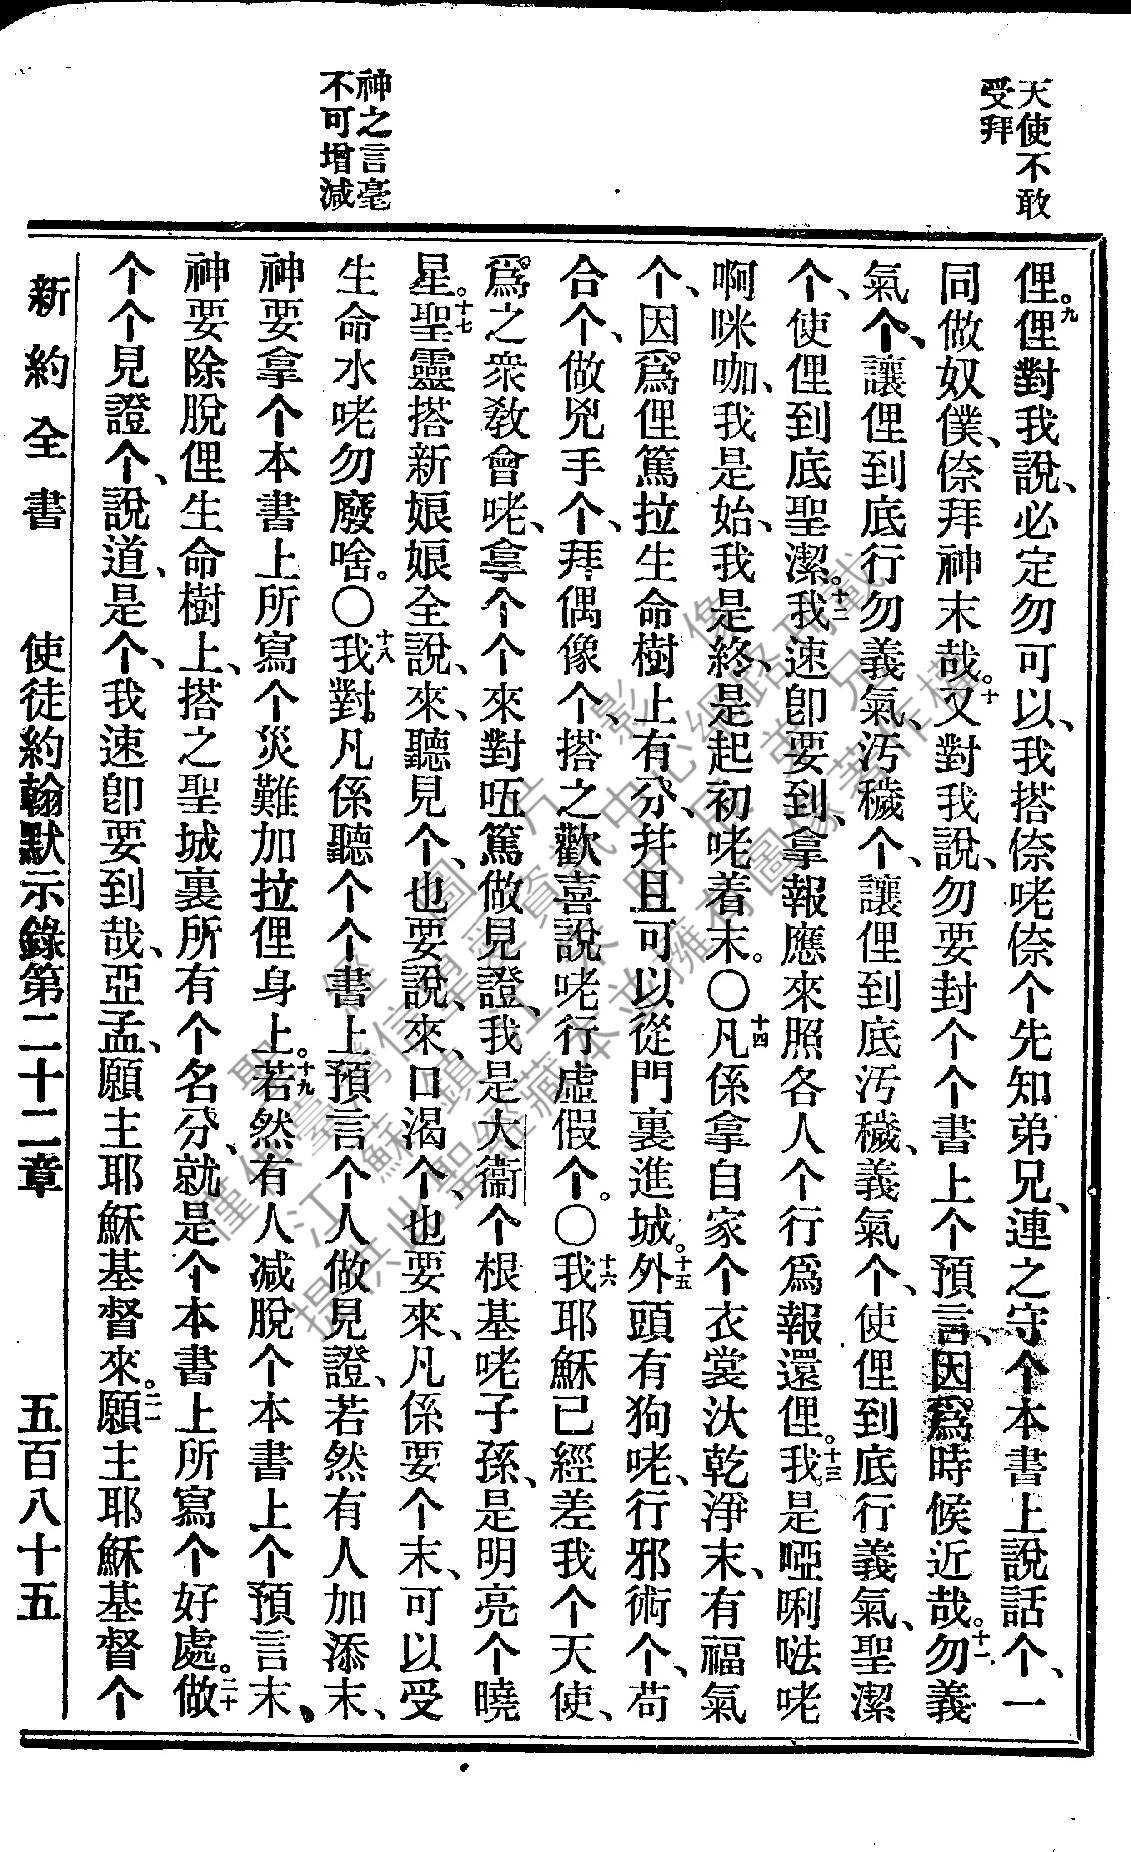 天使不敢
受拜
神之言毫
不可增減
俚。九俚對我說、必定勿可以、我搭倷咾倷个先知弟兄、連之守个本書上說話个、一
同做奴僕、倷拜神末哉。十又對我說、勿要封个个書上个預言、因爲時候近哉。十一勿義
氣个、讓俚到底行勿義氣、汚穢个、讓俚到底汚穢、義氣个、使俚到底行義氣、聖潔
个、使俚到底聖潔。十二我速卽要到、拿報應來照各人个行爲報還俚。十三我是啞唎㕸咾
啊咪咖、我是始、我是終、是起初咾着末。〇十四凡係拿自家个衣裳汏乾淨末、有福氣
个、因爲俚篤拉生命樹上有分、幷且可以從門裏進城。十五外頭有狗咾、行邪術个、苟
合个、做兇手个、拜偶像个、搭之歡喜說咾行虛假个。〇十六我耶穌已經差我个天使、
爲之衆敎會咾、拿个个來對㕶篤做見證、我是大衞个根基咾子孫、是明亮个曉
星。十七聖靈搭新娘娘全說、來、聽見个、也要說、來、口渴个、也要來、凡係要个末、可以受
生命水咾勿廢啥。〇十八我對凡係聽个个書上預言个人做見證、若然有人加添末、
神要拿个本書上所寫个災難加拉俚身上。十九若然有人減脫个本書上个預言末、
神要除脫俚生命樹上、搭之聖城裏所有个名分、就是个本書上所寫个好處。二十做
个个見證个、說道、是个、我速卽要到哉、亞孟、願主耶穌基督來。二一願主耶穌基督个
新約全書　使徒約翰默示錄第二十二章　五百八十五
聖經圖片影像
僅供臺灣信望愛資訊中心網路刊載
江蘇鎮江
提供此聖經藏本並擁有圖象著作權